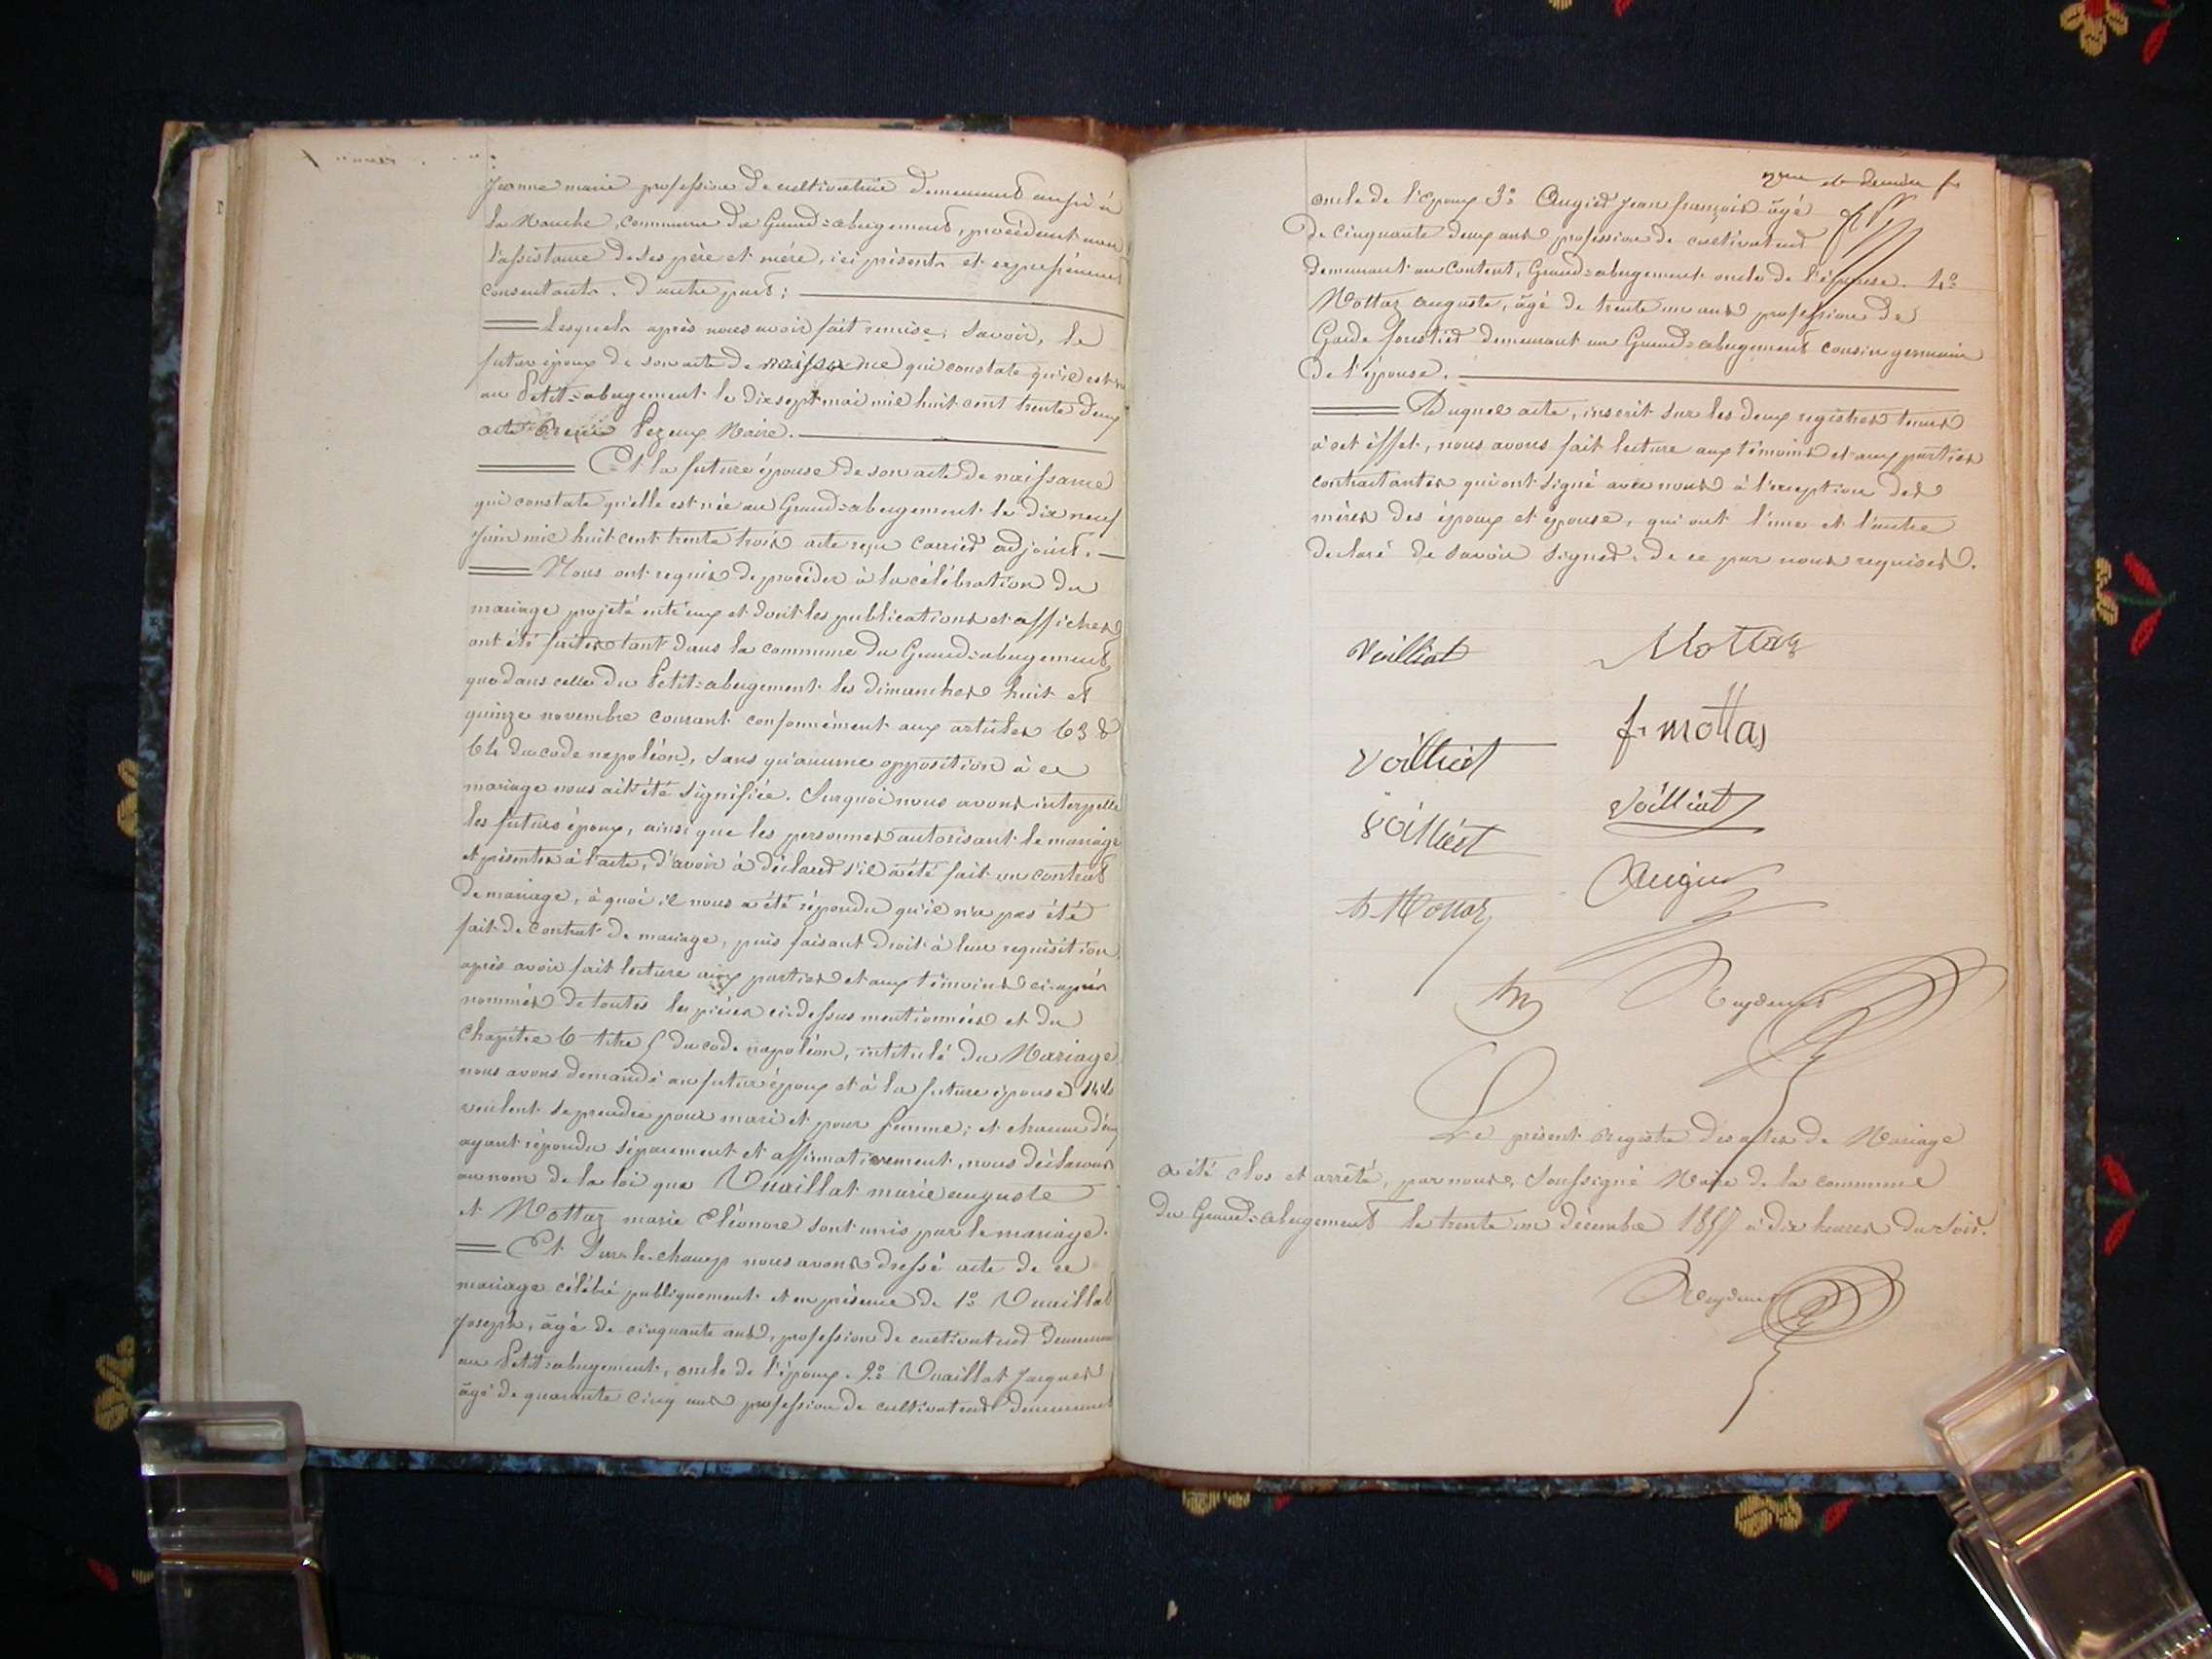 Jeanne marie profession de cultivatrice demeurant aussi à
la Manche, commune du Grand=abergement, procédant avec
l'assistance de ses père et mère, ici présents et expressément
consentants. d'autre part;
Lesquels après nous avoir fait remise; Savoir, le
futur époux de son acte de naissance qui constate qu'il est né
au Petit=abergement le dix sept mai mil huit cent trente deux
acte Maire.
Et la future épouse de son acte de naissance
qui constate qu'elle est née au Grand=abergement le dix neuf
Juin mil huit cent trente trois acte reçu Carrier adjoint.
Nous ont requis de procéder à la célébration du
mariage projeté entr'eux et dont les publications et affiches
ont été faites tant dans la commune du Grand=abergement,
que dans celle du Petit=abergement les dimanches huit et
quinze novembre courant conformément aux articles 63 &
64 du code napoléon, sans qu'aucune opposition à ce
mariage nous ait été signifiée. Surquoi nous avons interpellé
les futurs époux, ainsi que les personnes autorisant le mariage
et présentes à l'acte, d'avoir à déclarer s'il a été fait un contrat
de mariage, à quoi il nous a été répondu qu'il n'a pas été
fait de contrat de mariage, puis faisant droit à leur requisition
après avoir fait lecture aux parties et aux témoins ci-après
nommés de toutes les pièces ci-dessus mentionnées et du
Chapitre 6 titre 5 du code napoléon, intitulé du Mariage
nous avons demandé au futur époux et à la future épouse s'ils
veulent se prendre pour mari et pour femme; et chacun d'eux
ayant répondu séparement et affirmativement, nous déclarons
au nom de la loi que Vuaillat marie auguste
et Mottaz marie Eléonore sont unis par le mariage.
Et Sur-le-champ nous avons dressé acte de ce
mariage célébré publiquement et en présence de 1º Vuaillat
Joseph, âgé de cinquante ans, profession de cultivateur demeurant
au Petit=abergement, oncle de l'époux. 2º Vuaillat Jacques
âgé de quarante cinq ans profession de cultivateur demeurant
et dernier f
oncle de l'époux 3º Augier Jean françois âgé
de cinquante deux ans profession de cultivateur
demeurant au Content, Grand=abergement oncle de l'épouse. 4º
Mottaz auguste, âgé de trente un ans profession de
Garde forestier demeurant au Grand=abergement cousin germain
de l'épouse.
Duquel acte, inscrit sur les deux registres tenus
à cet èffet, nous avons fait lecture aux témoins et aux parties
contractantes qui ont signé avec nous à l'exception des
mères des époux et épouse, qui ont l'une et l'autre
declaré de savoir signer de ce par nous requises.
Voilliat Mottaz
f. mottaz
Voilliat
Voilliat
Voilliat
Augier
Mottaz
Le présent Registre des actes de Mariage
a été clos et arrêté, par nous, Soussigné Maire de la commune
du Grand=abergement le trente un décembre 1857 à dix heures du Soir.